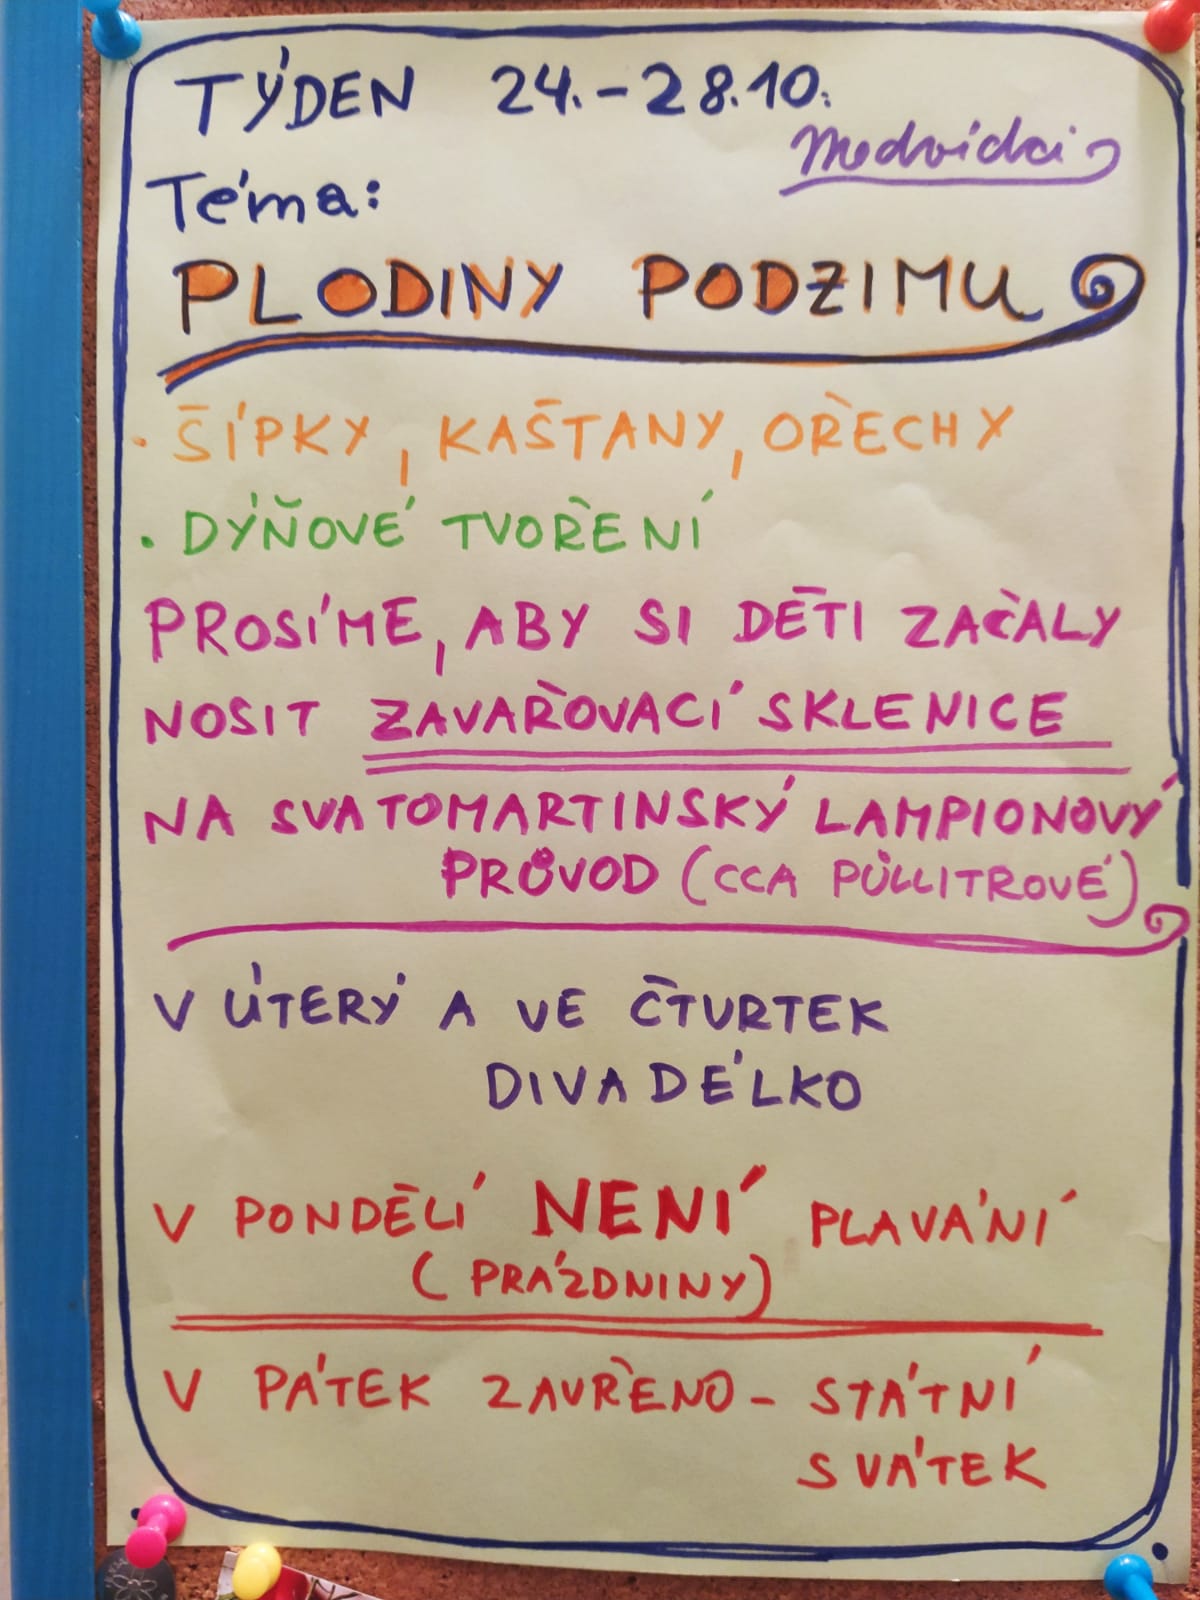 TÝDEN 24.-28.10.
Medvídci
Téma:
PLODINY PODZIMU
• ŠÍPKY, KAŠTANY, OŘECHY
• DÝŇOVÉ TVOŘENÍ
PROSÍME, ABY SI DĚTI ZAČALY
NOSIT ZAVAŘOVACÍ SKLENICE
NA SVATOMARTINSKÝ LAMPIONOVÝ
PRŮVOD (CCA PŮLLITROVÉ)
V ÚTERÝ A VE ČTVRTEK
DIVADÉLKO
V PONDĚLÍ NENÍ PLAVÁNÍ
(PRÁZDNINY)
V PÁTEK ZAVŘENO - STÁTNÍ
SVÁTEK